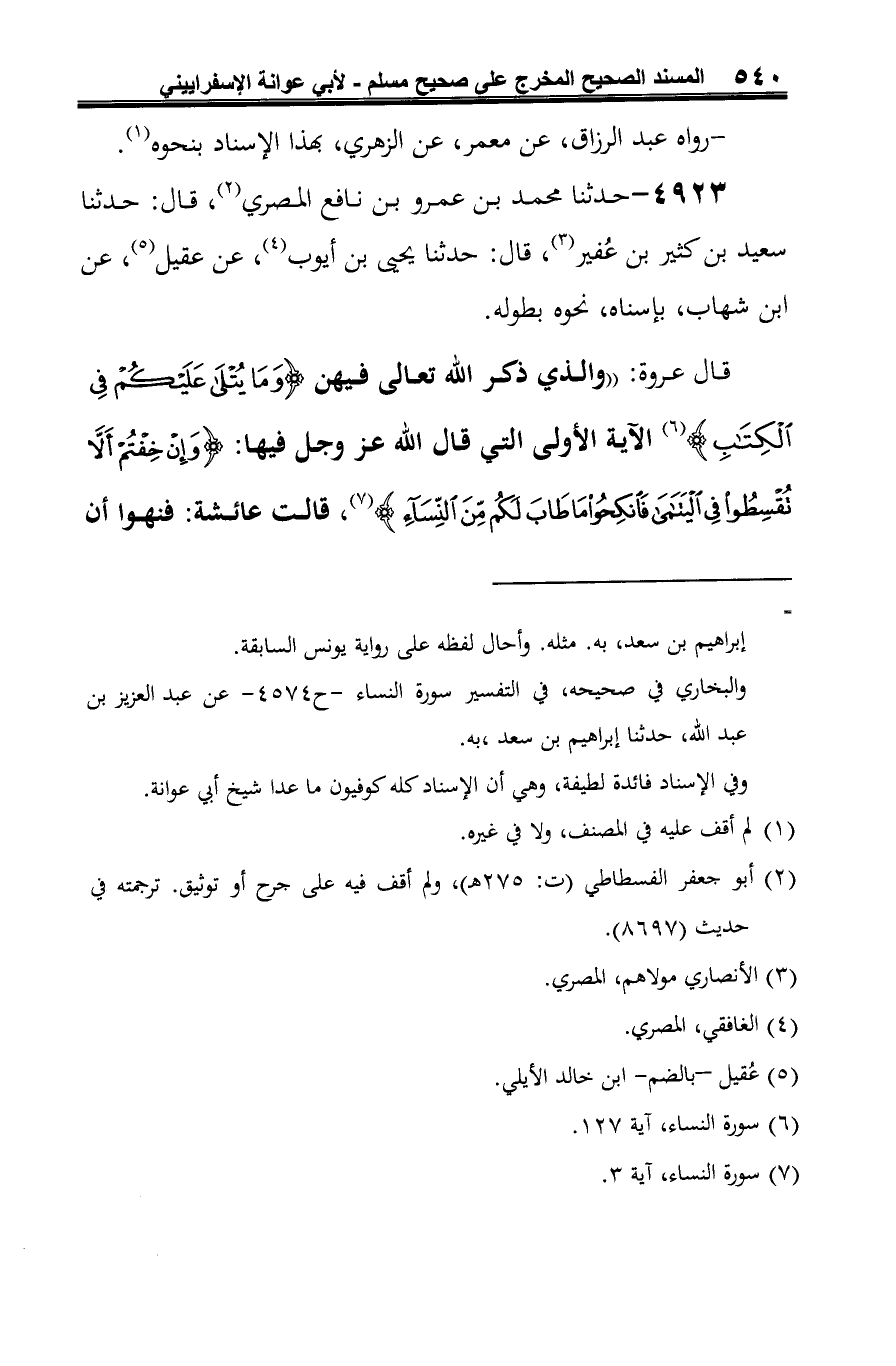 ٥٤٠ المسند الصحيح المخرج على صحيح مسلم - لأبي عوانة الإسفراييني
-رواه عبد الرزاق، عن معمر، عن الزهري، بهذا الإسناد بنحوه(١).
٤٩٢٣-حدثنا محمد بن عمرو بن نافع المصري(٢)، قال: حدثنا
سعيد بن كثير بن عُفير(٣)، قال: حدثنا يحيى بن أيوب(٤)، عن عقيل(٥)، عن
ابن شهاب، بإسناه، نحوه بطوله.
قال عروة: ((والذي ذكر الله تعالى فيهن ﴿وَمَا يُتْلَىٰ عَلَيْكُمْ فِى
ٱلْكِتَٰبِ﴾(٦) الآية الأولى التي قال الله عز وجل فيها: ﴿وَإِنْ خِفْتُمْ أَلَّا
تُقْسِطُوا۟ فِى ٱلْيَتَٰمَىٰ فَٱنكِحُوا۟ مَا طَابَ لَكُم مِّنَ ٱلنِّسَآءِ﴾(٧)، قالت عائشة: فنهوا أن
=
إبراهيم بن سعد، به. مثله. وأحال لفظه على رواية يونس السابقة.
والبخاري في صحيحه، في التفسير سورة النساء -ح٤٥٧٤- عن عبد العزيز بن
عبد الله، حدثنا إبراهيم بن سعد ،به.
وفي الإسناد فائدة لطيفة، وهي أن الإسناد كله كوفيون ما عدا شيخ أبي عوانة.
(١) لم أقف عليه في المصنف، ولا في غيره.
(٢) أبو جعفر الفسطاطي (ت: ٢٧٥هـ)، ولم أقف فيه على جرح أو توثيق. ترجمته في
حديث (٨٦٩٧).
(٣) الأنصاري مولاهم، المصري.
(٤) الغافقي، المصري.
(٥) عُقيل -بالضم- ابن خالد الأيلي.
(٦) سورة النساء، آية ١٢٧.
(٧) سورة النساء، آية ٣.